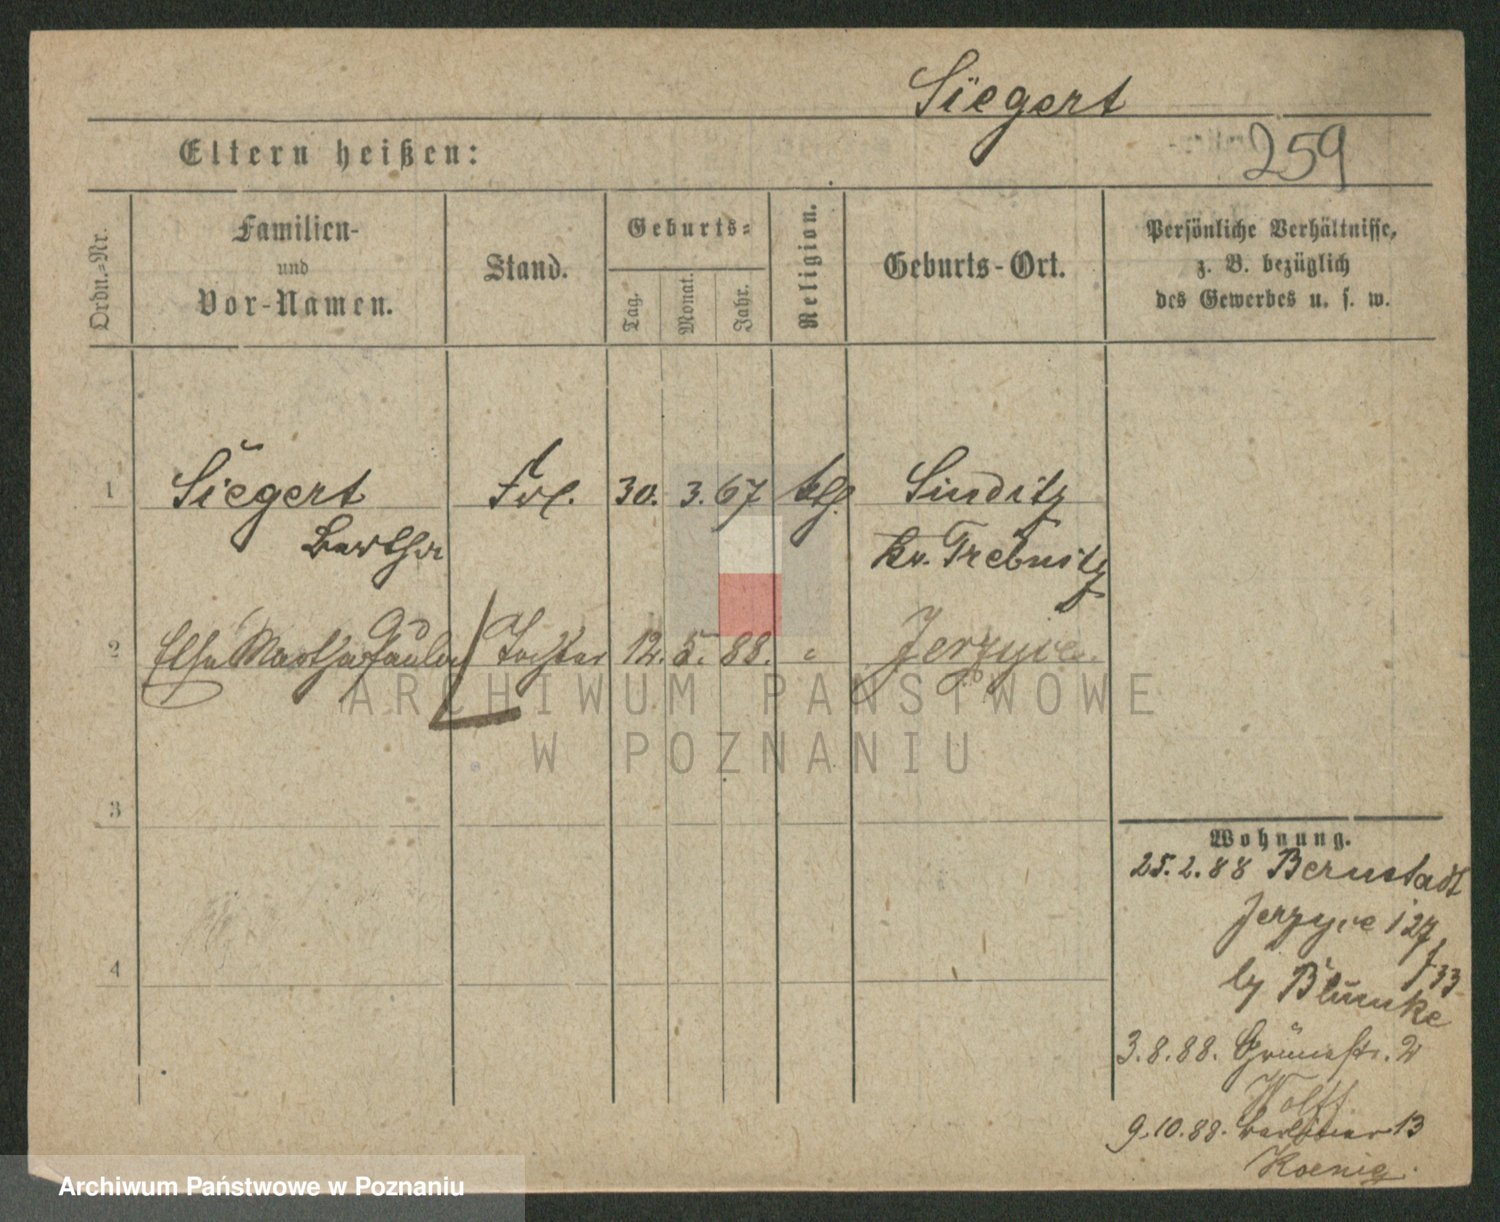 Siegert
259
Eltern heißen:
Ordn.-Nr.
Familien-
und
Vor-Namen.
Stand.
Geburts-
Tag.
Monat.
Jahr.
Religion.
Geburts-Ort.
Persönliche Verhältnisse,
z. B. bezüglich
des Gewerbes u. s. w.
1 Siegert Frl. 30. 3. 67 ktg. Sinditz
Bertha Kr. Trebnitz
2 Martha Paulin Tochter 12. 5. 88. " Jerzyce
ARCHIWUM PAŃSTWOWE
W POZNANIU
3
4
Wohnung.
25.2.88 Bernstadt
Jerzyce 127
f 33
by Blümke
3.8.88. Grünestr. 2
Wolff
9.10.88. 13
Koenig.
Archiwum Państwowe w Poznaniu